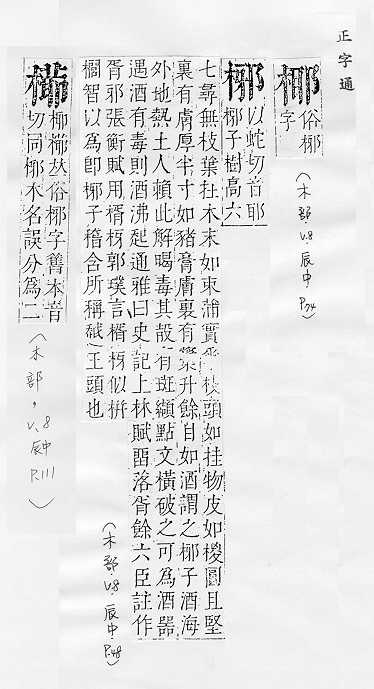 正字通
俗梛
字
(木部 V.8 辰中 P.74)
以蛇切音耶
梛子樹高六
七尋無枝葉在木末如束蒲實垂枝頭如挂物皮如椶圓且堅
裏有膚厚半寸如豬膏膚裏有漿升餘自如酒謂之梛子酒海
外地熱土人賴此解暍毒其殼有斑纈點文橫破之可爲酒器
遇酒有毒則酒沸起通雅曰史記上林賦畱落胥餘六臣註作
胥邪張衡賦用楈枒郭璞言楈枒似栟
櫚智以爲卽梛子稽含所稱越王頭也
(木部 V.8 辰中 P.48)
丛俗梛字舊本音
切同梛木名誤分爲二
(木部, V.8 辰中 P.111)